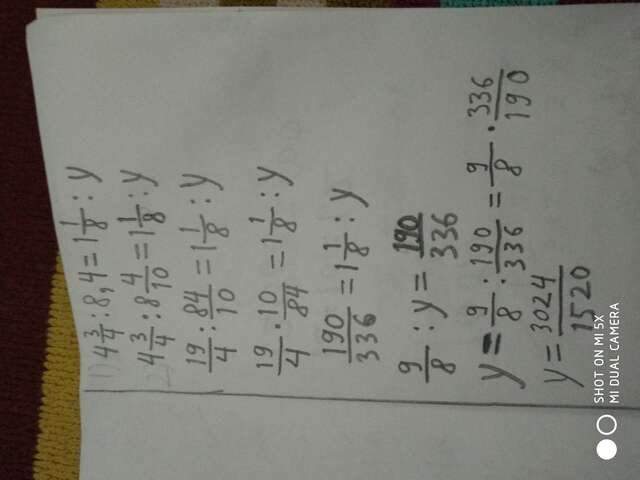 4 3/4 : 8,4 = 1 1/8 : y
4 3/4 : 8 4/10 = 1 1/8 : y
19/4 : 84/10 = 1 1/8 : y
19/4 · 10/84 = 1 1/8 : y
190/336 = 1 1/8 : y
9/8 : y = 190/336
y = 9/8 : 190/336 = 9/8 · 336/190
y = 3024/1520
SHOT ON MI 5X
MI DUAL CAMERA